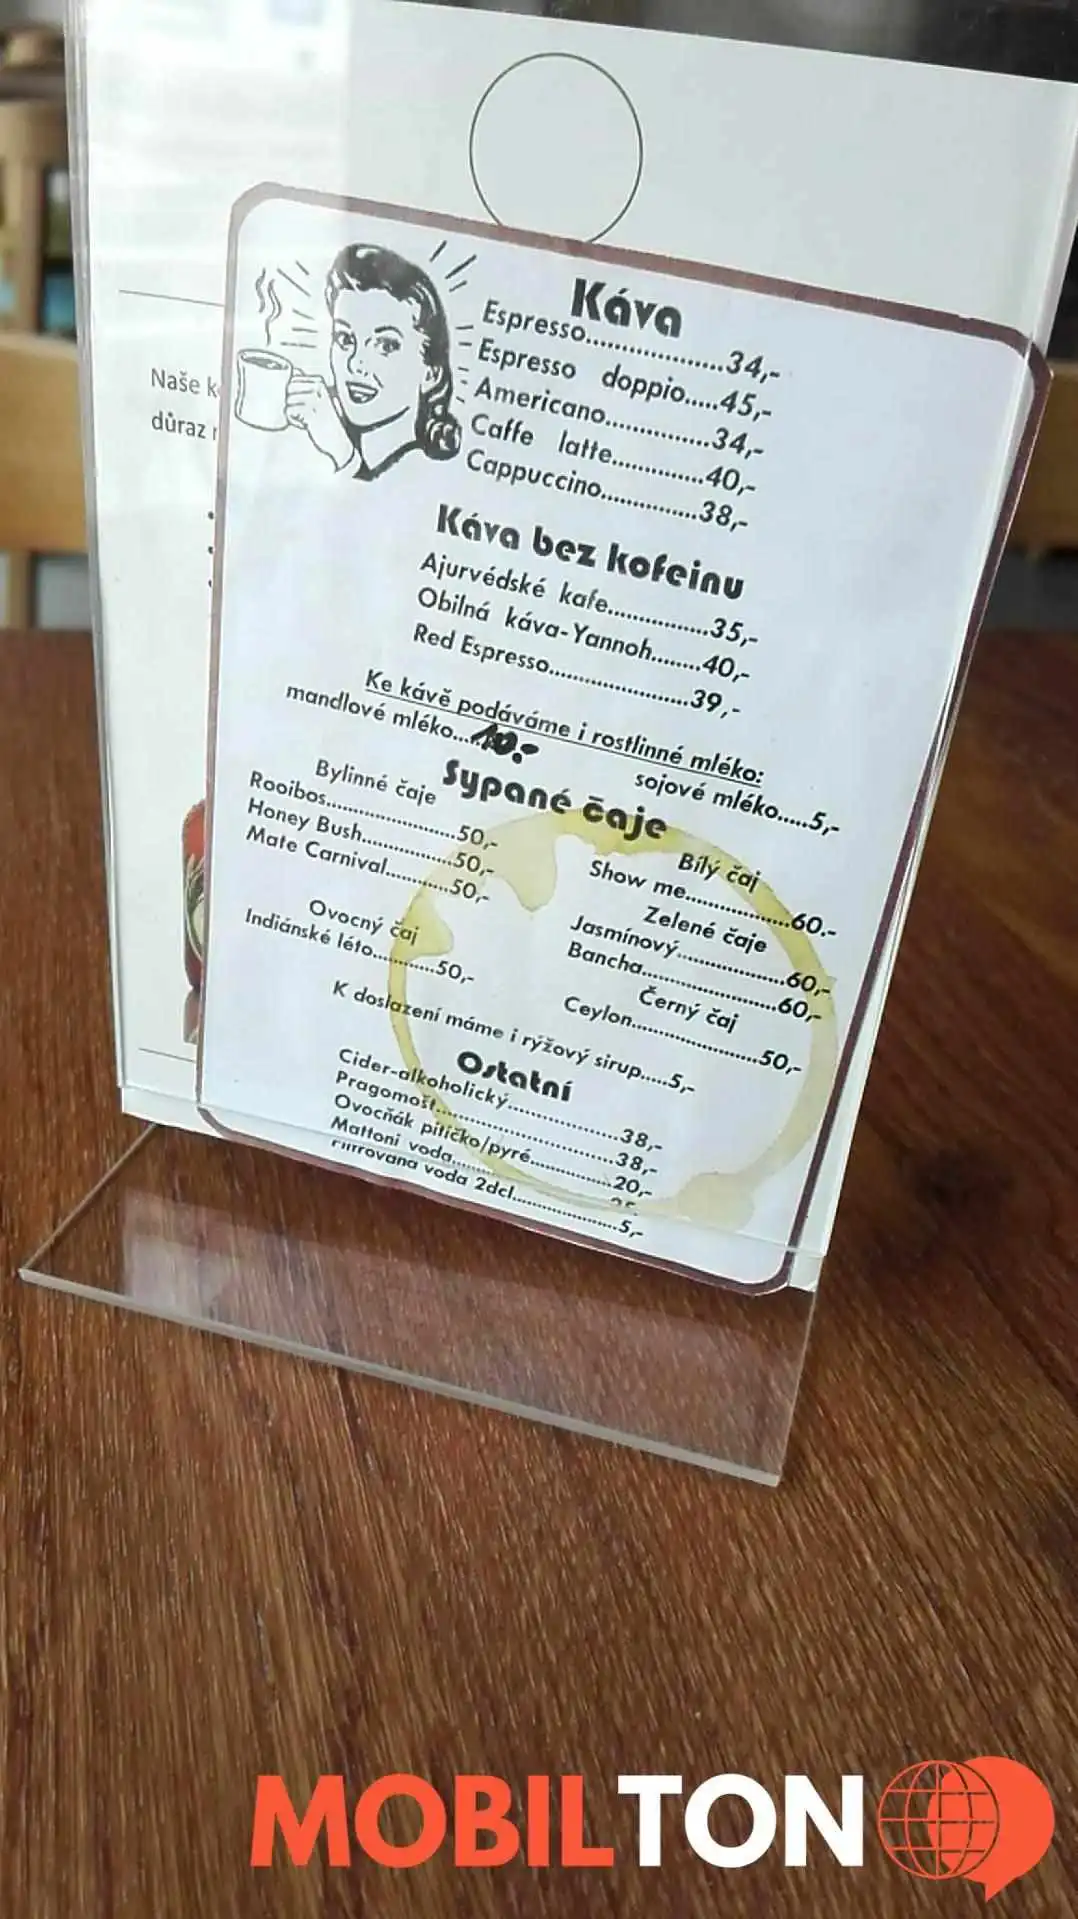 Káva
Espresso....................34,-
Espresso doppio.....45,-
Americano...............34,-
Caffe latte.............40,-
Cappuccino..............38,-
Káva bez kofeinu
Ajurvédské kafe...............35,-
Obilná káva-Yannoh.......40,-
Red Espresso.....................39,-
Ke kávě podáváme i rostlinné mléko:
mandlové mléko.....10.-
sojové mléko.....5,-
Sypané čaje
Bylinné čaje
Rooibos...................50,-
Honey Bush..............50,-
Mate Carnival..........50,-
Ovocný čaj
Indiánské léto..........50,-
Bílý čaj
Show me................60.-
Zelené čaje
Jasmínový.................60,-
Bancha.....................60,-
Černý čaj
Ceylon....................50,-
K doslazení máme i rýžový sirup.....5,-
Ostatní
Cider-alkoholický.................38,-
Pragomošt...........................38,-
Ovocňák pitíčko/pyré.............20,-
Mattoni voda
Filtrovaná voda 2dcl................5,-
Naše
důraz
MOBILTON